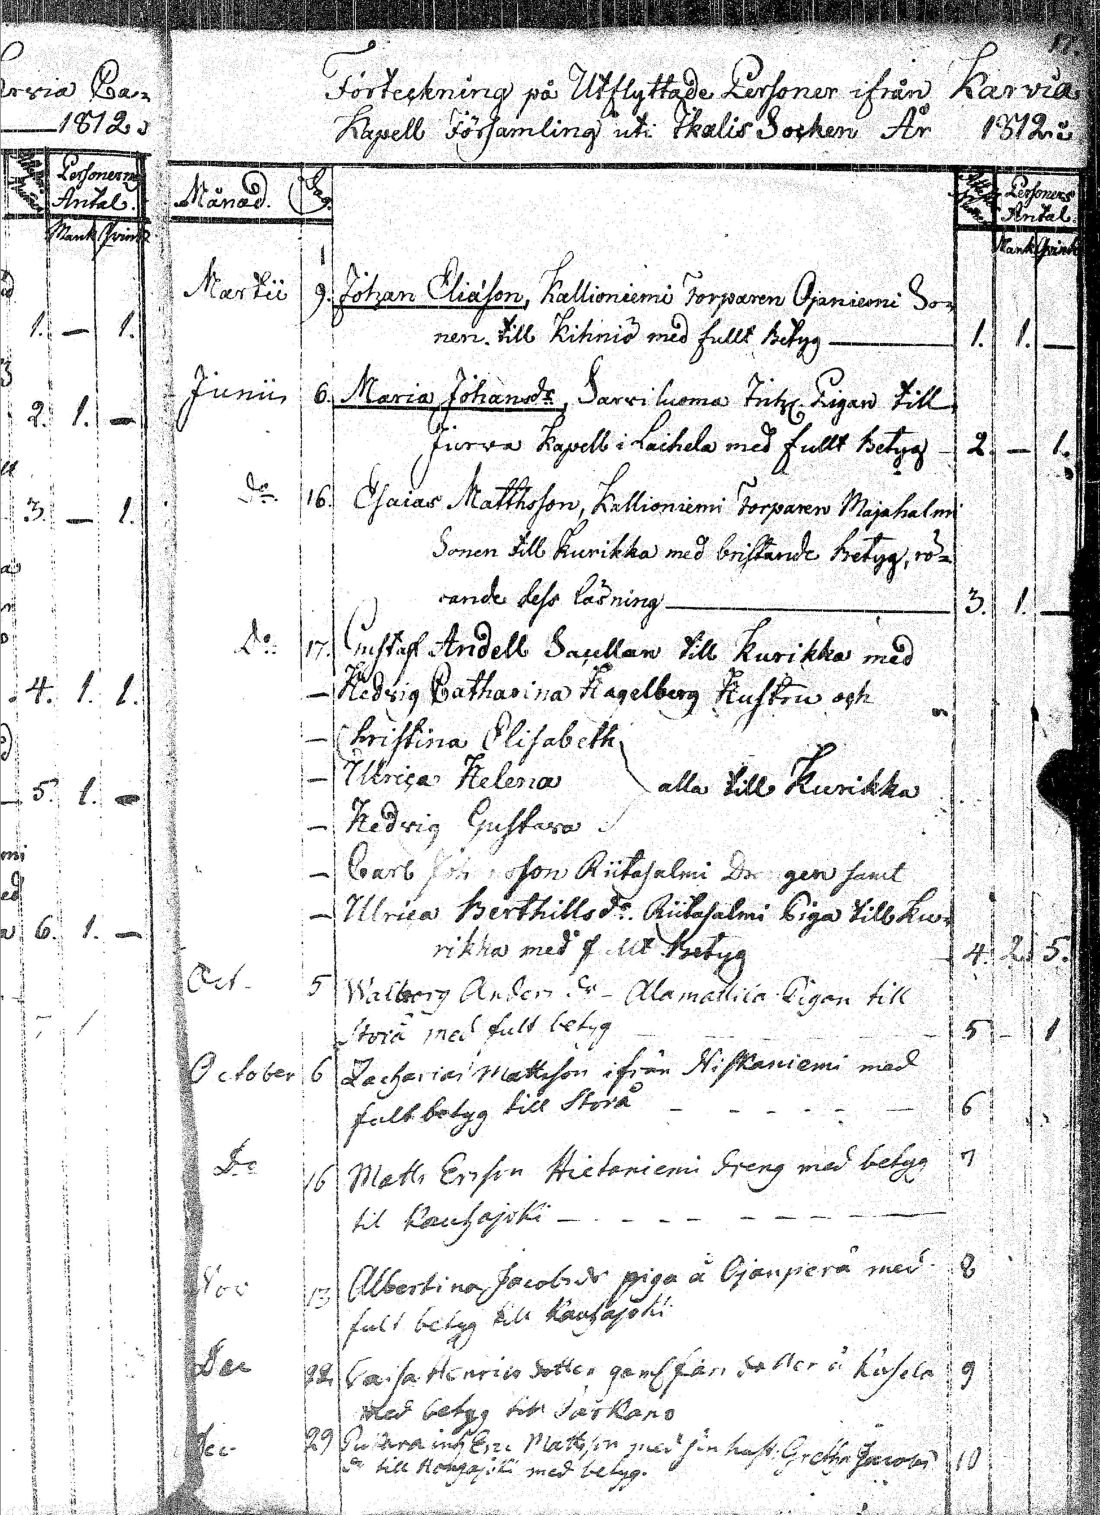 Karvia Ca-
1812.
Personernes
Antal.
Mank Qvink
1. — 1.
2. 1. —
3. — 1.
4. 1. 1.
5. 1. —
6. 1. —
17.
Förteckning på Utflyttade Personer ifrån Karvia
Kapell Församling uti Ikalis Socken År 1812.
Månad. Dag Personers
Antal.
Mank Qvink
Martii 9. Johan Eliäson, Kallioniemi Torparen Ojaniemi So-
nen. till Kihniö med fullt Betyg — 1. 1. —
Junii 6. Maria Johansdr, Sarviluoma Pigan till
Jurva Kapell i Laihela med fullt Betyg - 2. — 1.
Do 16. Esaias Matthsson, Kallioniemi Torparen Majahalmi
Sonen till Kurikka med bristande Betyg, rö-
rande dess läsning — 3. 1. —
Do 17. Gustaf Andell till Kurikka med
— Hedvig Catharina Hagelberg Hustru och
— Christina Elisabeth
— Ulrica Helena alla till Kurikka
— Hedvig Gustava
— Carl Riitasalmi Drengen samt
— Ulrica Berthillsdr. Riitasalmi Piga till Ku-
rikka med fullt Betyg 4. 2. 5.
Oct. 5 Walborg Andersdr - Alamattila Pigan till
Storå med fult betyg 5 - 1
October 6 Zacharias Mattsson ifrån Niskaniemi med
fult betyg till Storå - - - - - 6
Do 16 Matts Ersson Hietaniemi Dreng med betyg 7
til Kauhajoki - - - - -
Nov 13 Albertina Jacobsdr piga å Ojanperä med 8
fult betyg till Kauhajoki
Dec 22 Caisa Henricsdotter å 9
med betyg till Parkano
Dec 29 Eric Mattsson med sin hust. Gretha Jacobs 10
dr till Kauhajoki med betyg.